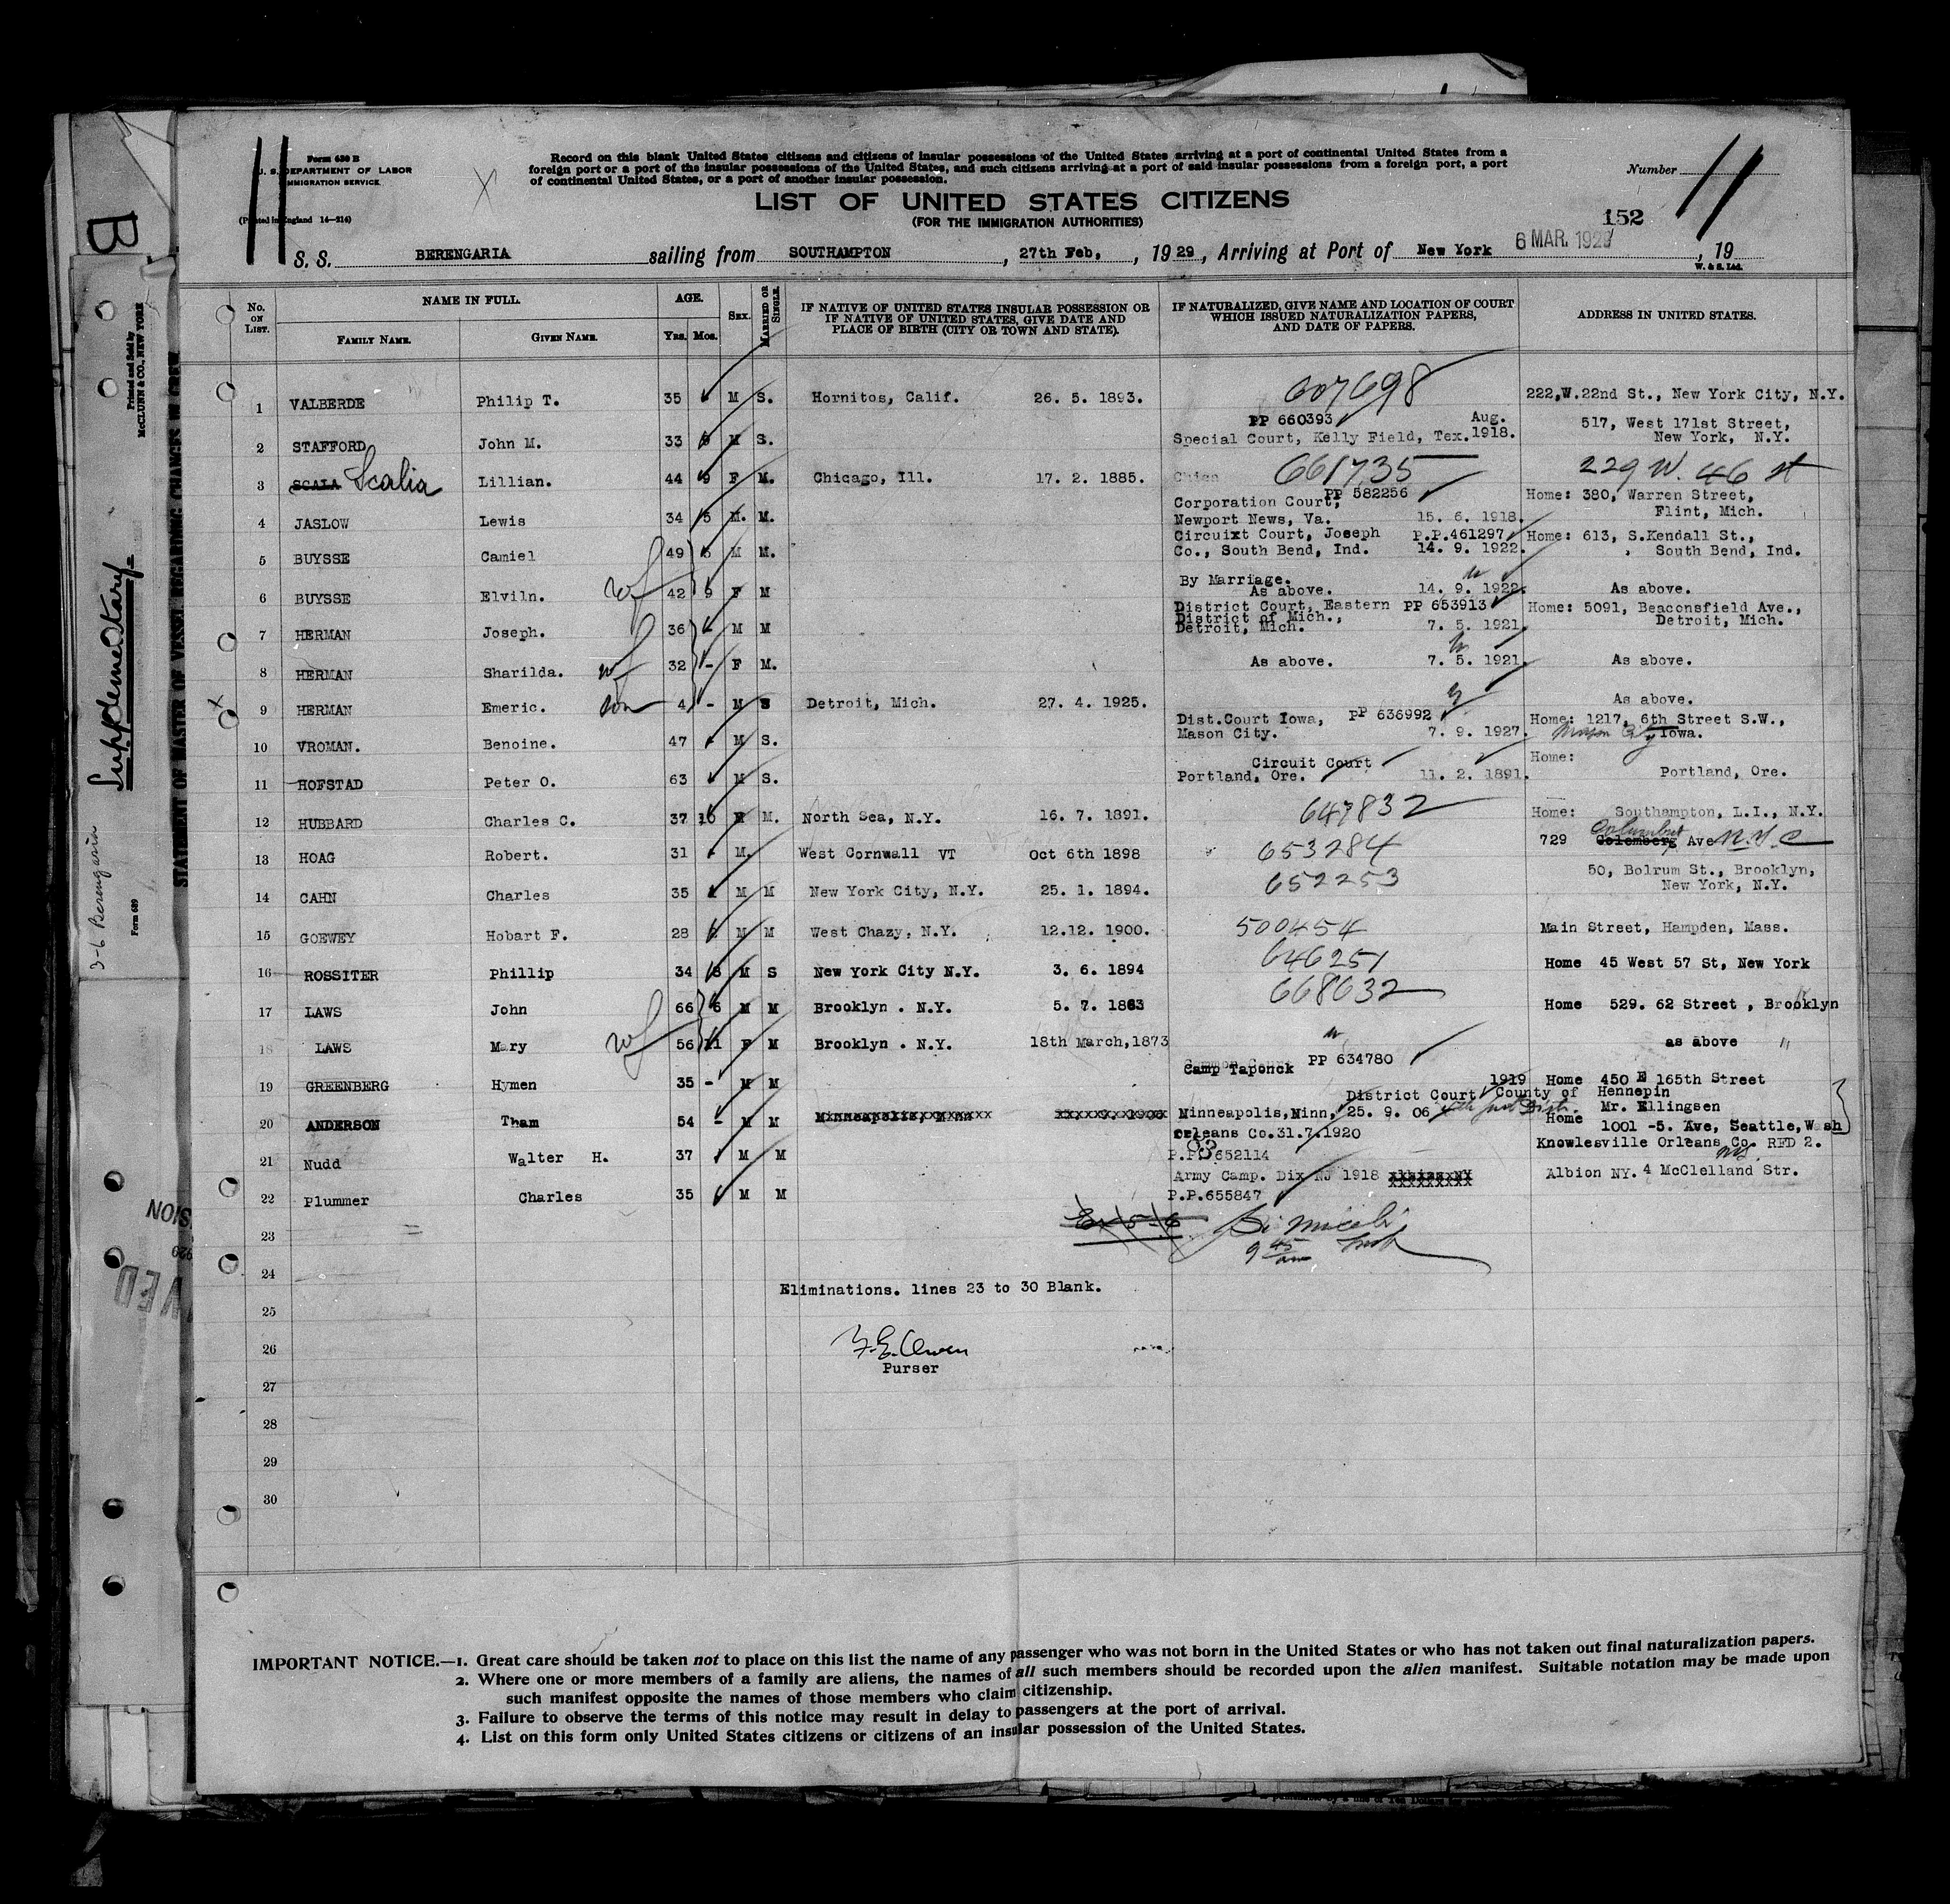 Form 630 B
U. S. DEPARTMENT OF LABOR
IMMIGRATION SERVICE.
(Printed in England 14—214)
Record on this blank United States citizens and citizens of insular possessions of the United States arriving at a port of continental United States from a
foreign port or a port of the insular possessions of the United States, and such citizens arriving at a port of said insular possessions from a foreign port, a port
of continental United States, or a port of another insular possession.
Number 11
LIST OF UNITED STATES CITIZENS
(FOR THE IMMIGRATION AUTHORITIES)
152
S. S. BERENGARIA sailing from SOUTHAMPTON, 27th Feb, , 1929, Arriving at Port of New York 6 MAR. 1929, 19
W. & S. Ltd.
No. ON LIST. NAME IN FULL. FAMILY NAME. GIVEN NAME. AGE. Yrs. Mos. SEX. MARRIED OR SINGLE. IF NATIVE OF UNITED STATES INSULAR POSSESSION OR IF NATIVE OF UNITED STATES, GIVE DATE AND PLACE OF BIRTH (CITY OR TOWN AND STATE). IF NATURALIZED, GIVE NAME AND LOCATION OF COURT WHICH ISSUED NATURALIZATION PAPERS, AND DATE OF PAPERS. ADDRESS IN UNITED STATES.
1 VALBERDE Philip T. 35 M S. Hornitos, Calif. 26. 5. 1893. 607698 222,W.22nd St., New York City, N.Y.
2 STAFFORD John M. 33 M S. PP 660393 Special Court, Kelly Field, Tex. Aug. 1918. 517, West 171st Street, New York, N.Y.
3 SCALA Scalia Lillian. 44 9 F M. Chicago, Ill. 17. 2. 1885. Chica 661735 229 W. 46 st
4 JASLOW Lewis 34 5 M. M. PP 582256 Corporation Court, Newport News, Va. 15. 6. 1918. Home: 380, Warren Street, Flint, Mich.
5 BUYSSE Camiel 49 5 M M. Circuixt Court, Joseph Co., South Bend, Ind. P.P.461297 14. 9. 1922. Home: 613, S.Kendall St., South Bend, Ind.
6 BUYSSE Elviln. wf 42 9 F M By Marriage. As above. 14. 9. 1922. As above.
7 HERMAN Joseph. 36 M M District Court, Eastern District of Mich., Detroit, Mich. PP 653913 7. 5. 1921. Home: 5091, Beaconsfield Ave., Detroit, Mich.
8 HERMAN Sharilda. wf 32 - F M. As above. 7. 5. 1921. As above.
9 HERMAN Emeric. son 4 - M S Detroit, Mich. 27. 4. 1925. As above.
10 VROMAN. Benoine. 47 M S. Dist.Court Iowa, Mason City. PP 636992 7. 9. 1927. Home: 1217, 6th Street S.W., Mason City Iowa.
11 HOFSTAD Peter O. 63 M S. Circuit Court Portland, Ore. 11. 2. 1891. Home: Portland, Ore.
12 HUBBARD Charles C. 37 10 M. North Sea, N.Y. 16. 7. 1891. 647832 Home: Southampton, L.I., N.Y.
13 HOAG Robert. 31 M. West Cornwall VT Oct 6th 1898 653284 729 Colemberg Columbus Ave N.Y.C
14 CAHN Charles 35 M M New York City, N.Y. 25. 1. 1894. 652253 50, Bolrum St., Brooklyn, New York, N.Y.
15 GOEWEY Hobart F. 28 M M West Chazy, N.Y. 12.12. 1900. 500454 Main Street, Hampden, Mass.
16 ROSSITER Phillip 34 8 M S New York City N.Y. 3. 6. 1894 646251 Home 45 West 57 St, New York
17 LAWS John 66 6 M M Brooklyn . N.Y. 5. 7. 1863 668632 Home 529. 62 Street , Brooklyn
18 LAWS Mary wf 56 11 F M Brooklyn . N.Y. 18th March,1873 as above "
19 GREENBERG Hymen 35 - M M Camp Taponck PP 634780 1919 Home 450 E 165th Street
20 ANDERSON Tham 54 - M M Minneapolis, Minn District Court County of Hennepin Minneapolis,Minn, 25. 9. 06 Home Mr. Ellingsen 1001 -5. Ave, Seattle,Wash
21 Nudd Walter H. 37 M M Orleans Co.31.7.1920 P.P. 652114 Knowlesville Orleans Co. RFD 2. NY.
22 Plummer Charles 35 M M Army Camp. Dix NJ 1918 P.P.655847 Albion NY. 4 McClelland Str.
23
9 45 am
24
Eliminations. lines 23 to 30 Blank.
25
26
F.E. Owen
Purser
27
28
29
30
IMPORTANT NOTICE.—1. Great care should be taken not to place on this list the name of any passenger who was not born in the United States or who has not taken out final naturalization papers.
2. Where one or more members of a family are aliens, the names of all such members should be recorded upon the alien manifest. Suitable notation may be made upon
such manifest opposite the names of those members who claim citizenship.
3. Failure to observe the terms of this notice may result in delay to passengers at the port of arrival.
4. List on this form only United States citizens or citizens of an insular possession of the United States.
B
Supplementary
3-6 Berengaria
Form 689
Printed and Sold by
McCLUNN & CO., NEW YORK
STATEMENT OF MASTER OF VESSEL REGARDING CHANGES IN CREW